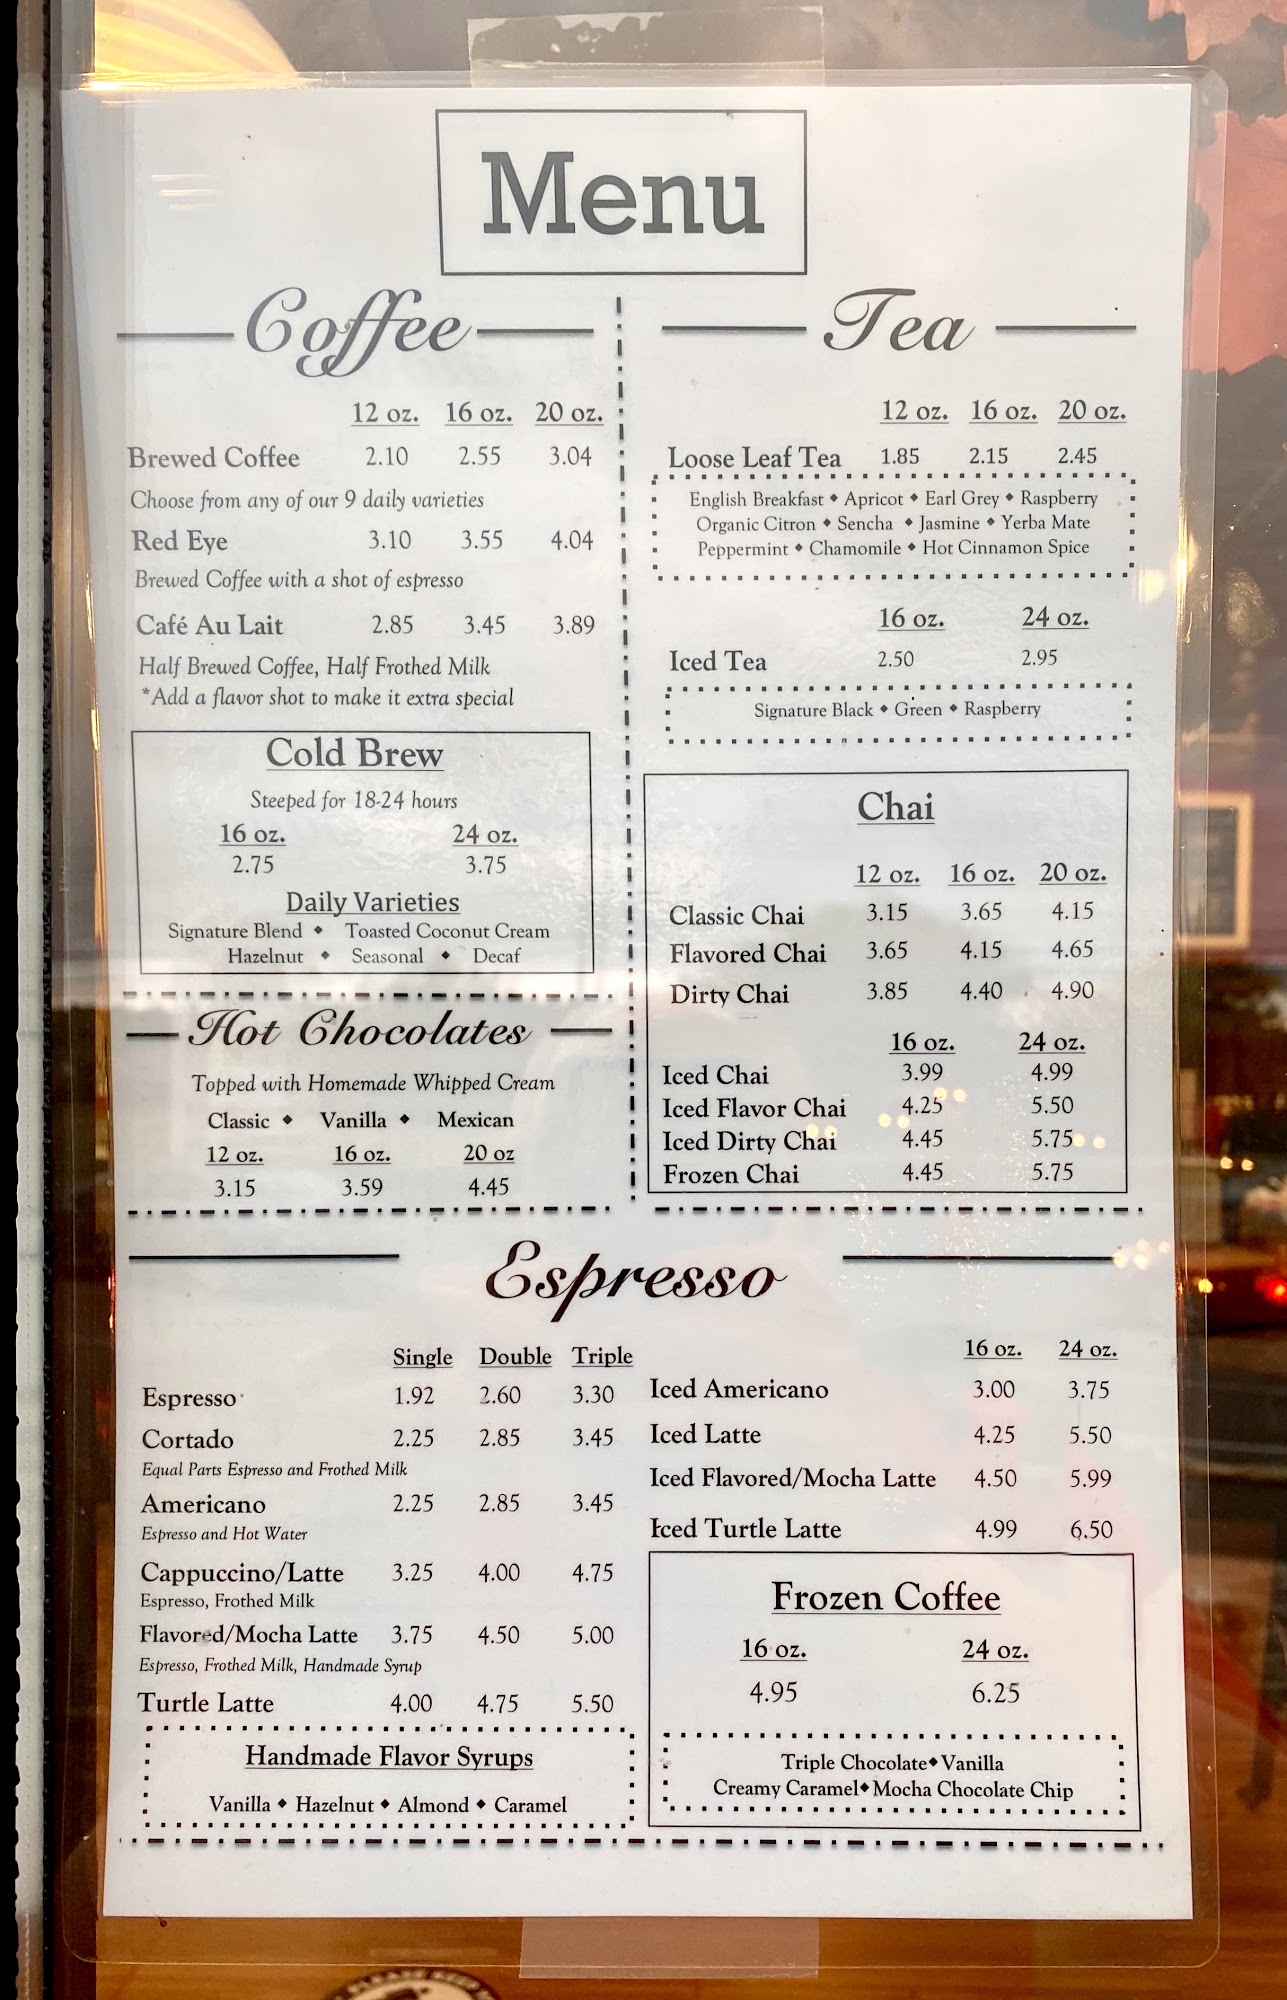 Menu
Coffee
12 oz. 16 oz. 20 oz.
Brewed Coffee 2.10 2.55 3.04
Choose from any of our 9 daily varieties
Red Eye 3.10 3.55 4.04
Brewed Coffee with a shot of espresso
Café Au Lait 2.85 3.45 3.89
Half Brewed Coffee, Half Frothed Milk
*Add a flavor shot to make it extra special
Cold Brew
Steeped for 18-24 hours
16 oz. 24 oz.
2.75 3.75
Daily Varieties
Signature Blend ◆ Toasted Coconut Cream
Hazelnut ◆ Seasonal ◆ Decaf
Hot Chocolates
Topped with Homemade Whipped Cream
Classic ◆ Vanilla ◆ Mexican
12 oz. 16 oz. 20 oz
3.15 3.59 4.45
Tea
12 oz. 16 oz. 20 oz.
Loose Leaf Tea 1.85 2.15 2.45
English Breakfast ◆ Apricot ◆ Earl Grey ◆ Raspberry
Organic Citron ◆ Sencha ◆ Jasmine ◆ Yerba Mate
Peppermint ◆ Chamomile ◆ Hot Cinnamon Spice
16 oz. 24 oz.
Iced Tea 2.50 2.95
Signature Black ◆ Green ◆ Raspberry
Chai
12 oz. 16 oz. 20 oz.
Classic Chai 3.15 3.65 4.15
Flavored Chai 3.65 4.15 4.65
Dirty Chai 3.85 4.40 4.90
16 oz. 24 oz.
Iced Chai 3.99 4.99
Iced Flavor Chai 4.25 5.50
Iced Dirty Chai 4.45 5.75
Frozen Chai 4.45 5.75
Espresso
Single Double Triple
Espresso 1.92 2.60 3.30
Cortado 2.25 2.85 3.45
Equal Parts Espresso and Frothed Milk
Americano 2.25 2.85 3.45
Espresso and Hot Water
Cappuccino/Latte 3.25 4.00 4.75
Espresso, Frothed Milk
Flavored/Mocha Latte 3.75 4.50 5.00
Espresso, Frothed Milk, Handmade Syrup
Turtle Latte 4.00 4.75 5.50
Handmade Flavor Syrups
Vanilla ◆ Hazelnut ◆ Almond ◆ Caramel
16 oz. 24 oz.
Iced Americano 3.00 3.75
Iced Latte 4.25 5.50
Iced Flavored/Mocha Latte 4.50 5.99
Iced Turtle Latte 4.99 6.50
Frozen Coffee
16 oz. 24 oz.
4.95 6.25
Triple Chocolate◆Vanilla
Creamy Caramel◆Mocha Chocolate Chip